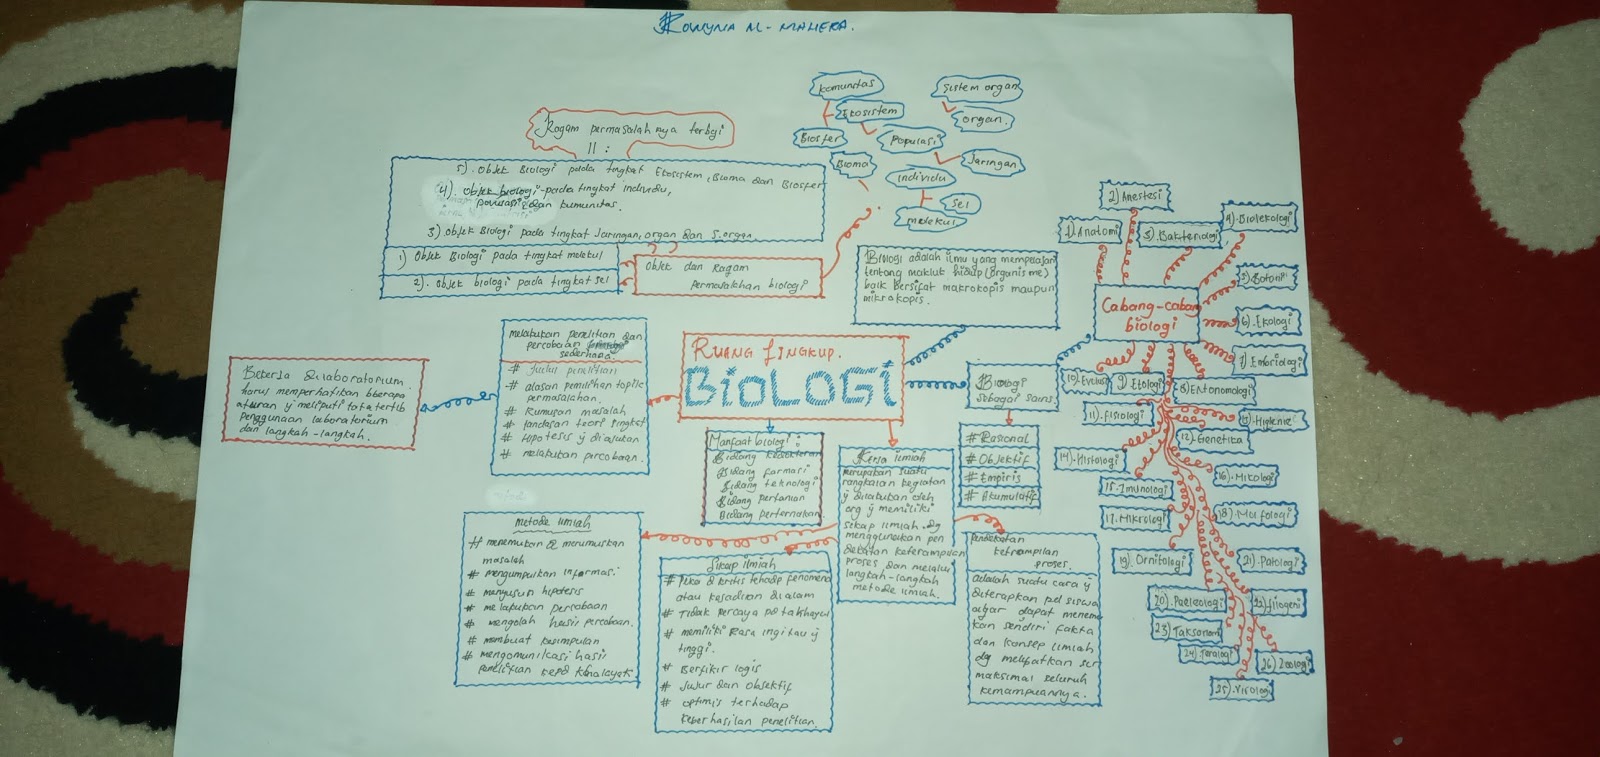 komunitas
Ekosistem
Biosfer
Populasi
Bioma
Individu
Sel
molekul
Sistem organ
organ.
Jaringan
Ragam permasalah nya terbgi
11 :
5). Objek Biologi pada tingkat Ekosistem, Bioma dan Biosfer
4). Objek biologi pada tingkat individu,
dan kumunitas.
3) Objek Biologi pada tingkat Jaringan, organ dan S.organ
1) Objek Biologi pada tingkat molekul
2). Objek biologi pada tingkat sel
Objek dan Ragam
permasalahan biologi
Biologi adalah ilmu yang mempelajari
tentang makluk hidup (organisme)
baik bersifat makrokopis maupun
mikrokopis.
RUANG LINGKUP.
BIOLOGI
melakukan penelitian dan
percobaan
sederhana.
# Judul penelitian
# alasan pemilihan topic
permasalahan.
# Rumusan masalah
# landasan teori singkat
# Hipotesis ÿ diajukan
# melakukan percobaan.
Bekerja dilaboratorium
harus memperhatikan bberapa
aturan ÿ meliputi tatatertib
penggunaan laboratorium
dan langkah-langkah.
Manfaat biologi :
Bidang kedokteran
Bidang farmasi
Bidang teknologi
Bidang pertanian
Bidang perternakan.
Kerja ilmiah
merupakan suatu
rangkaian kegiatan
ÿ dilakukan oleh
org ÿ memiliki
sikap ilmiah. dg
menggunakan pen
dekatan keterampilan
proses dan melalui
langkah-langkah
metode ilmiah.
Biologi
sebagai sains.
# Rasional
# Objektif
# Empiris
# Akumulatif
Metode ilmiah
# menemukan & merumuskan
masalah
# mengumpulkan informasi
# menyusun hipotesis
# melakukan percobaan
# mengolah hasil percobaan.
# membuat kesimpulan
# mengomunikasi hasil
penelitian kepd khalayak.
Sikap ilmiah
# Peka & kritis tehadp fenomena
atau kejadian di alam
# Tidak percaya pd takhayul
# memiliki Rasa ingitau ÿ
tinggi.
# Berfikir logis
# Jujur dan Objektif
# optimis terhadap
keberhasilan penelitian.
pendekatan
ketrampilan
proses.
adalah suatu cara ÿ
diterapkan pd siswa
agar dapat menemu
kan sendiri fakta
dan konsep ilmiah
dg melibatkan scr
maksimal seluruh
kemampuannya.
Cabang-cabang
biologi
1) Anatomi
2) Anestesi
3). Bakteriologi
4). Biolekologi
5) Botani
6). Ekologi
7) Embriologi
8) Entonomologi
9) Etologi
10) Evolusi
11). Fisiologi
12). Genetika
13) Higiene
14). Histologi
15. Imunologi
16). Mikologi
17. Mikrologi
18) Morfologi
19). Ornitologi
20). Paeleologi
21). Patologi
22) filogeni
23) Taksonomi
24) Teralogi
25). Virologi
26) Zoologi